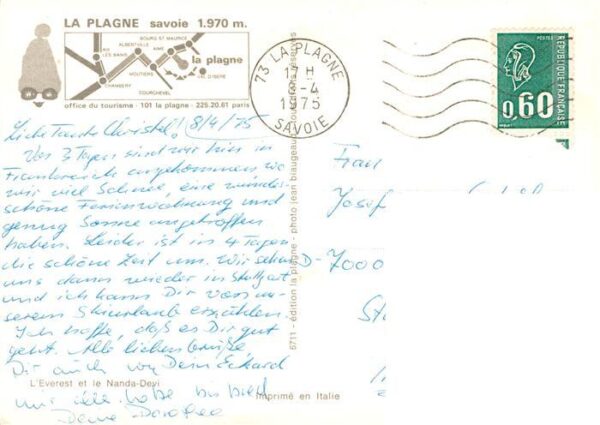 LA PLAGNE savoie 1.970 m.
BOURG ST MAURICE
ALBERTVILLE
AIX LES BAINS
AIME
la plagne
MOUTIERS
VAL D'ISERE
CHAMBERY
COURCHEVEL
office du tourisme - 101 la plagne - 225.20.61 paris
73 LA PLAGNE
H
-4
1975
SAVOIE
POSTES
0,60
REPUBLIQUE FRANÇAISE
Liebe Tante Christel! 8/4/75
Vor 3 Tagen sind wir hier in
Frankreich angekommen wo
wir viel Schnee, eine wunder-
schöne Ferienwohnung und
genug Sonne angetroffen
haben. Leider ist in 4 Tagen
die schöne Zeit um. Wir sehen
uns dann wieder in Stuttgart
und ich kann Dir von un-
serem Skiurlaub erzählen.
Ich hoffe, daß es Dir gut
geht. Alle lieben Grüße
Dir auch von Deim Eckard
Deine Dorothea
L'Everest et le Nanda-Devi
Imprimé en Italie
6711 - édition la plagne - photo jean biaugeaud
Frau
Josef
D-7000